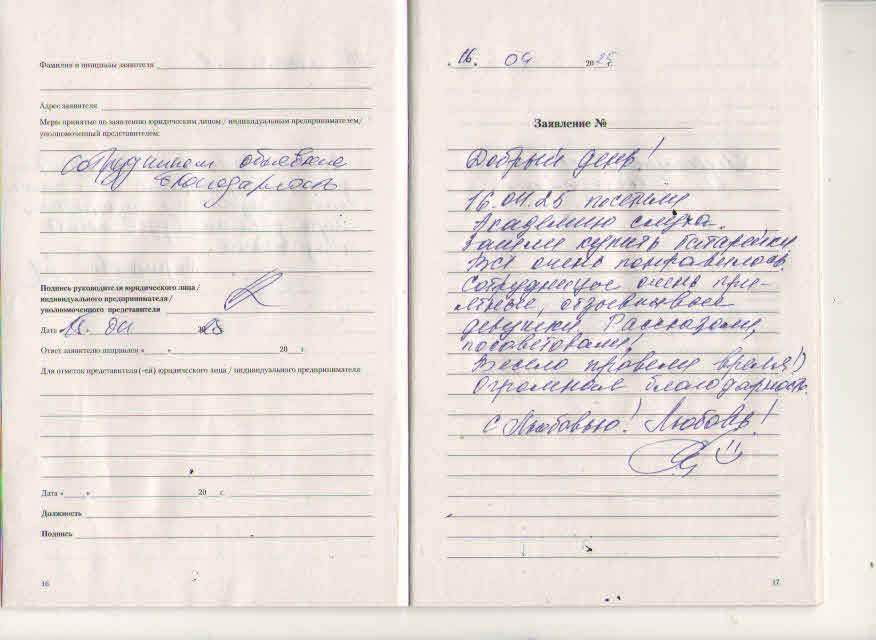 Фамилия и инициалы заявителя
Адрес заявителя
Меры принятые по заявлению юридическим лицом / индивидуальным предпринимателем/
уполномоченный представителем:
сотрудникам объявлена
благодарность
Подпись руководителя юридического лица /
индивидуального предпринимателя /
уполномоченного представителя
Дата 04 20
Ответ заявителю направлен « » 20 г.
Для отметок представителя (-ей) юридического лица / индивидуального предпринимателя:
Дата « » 20 г.
Должность
Подпись
16
16. 04 2025 г.
Заявление №
Добрый день!
16.04.25 посетили
Академию слуха.
Зашли купить батарейки.
Всё очень понравилось.
Сотрудницы очень прия-
тные, отзывчивые
девушки. Рассказали,
посоветовали!
Весело провели время!)
Огромная благодарность.
С Любовью! Любовь!
17